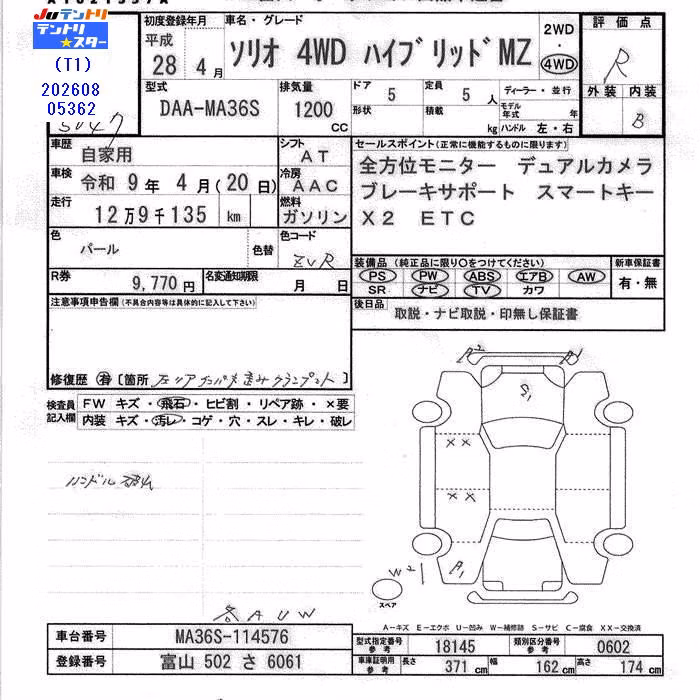 Juテントリ
テントリ★スター
(T1)
202608
05362
初度登録年月
平成
28 4月
車名・グレード
ソリオ 4WD ハイブリッドMZ
2WD
・
4WD
評価点
R
外装 内装
B
型式
DAA-MA36S
排気量
1200
cc
ドア
5
形状
定員
5 人
積載
kg
ディーラー・並行
モデル年式 年
ハンドル 左・右
車歴
自家用
シフト
AT
車検
令和 9年 4月(20日)
冷房
AAC
走行
12万9千135 km
燃料
ガソリン
色
パール
色替
色コード
ZVR
R券
9,770 円
名変通知期限
月 日
セールスポイント(正常に機能するものに限ります)
全方位モニター デュアルカメラ
ブレーキサポート スマートキー
X2 ETC
装備品(純正品に限り○をつけてください)
PS PW ABS エアB AW
SR ナビ TV カワ
新車保証書
有・無
後日品
取説・ナビ取説・印無し保証書
注意事項申告欄(不具合内容等は具体的に記入して下さい)
修復歴 有 〔箇所 〕
検査員
記入欄
FW キズ・飛石・ヒビ割・リペア跡・×要
内装 キズ・汚レ・コゲ・穴・スレ・キレ・破レ
A2
S1
××
××
A1
W2
スペア
各AUW
A-キズ E-エクボ U-凹み W-補修跡 S-サビ C-腐食 XX-交換済
車台番号
MA36S-114576
登録番号
富山 502 さ 6061
型式指定番号
参考
18145
類別区分番号
参考
0602
車庫証明用
参考
長さ 371 cm 幅 162 cm 高さ 174 cm